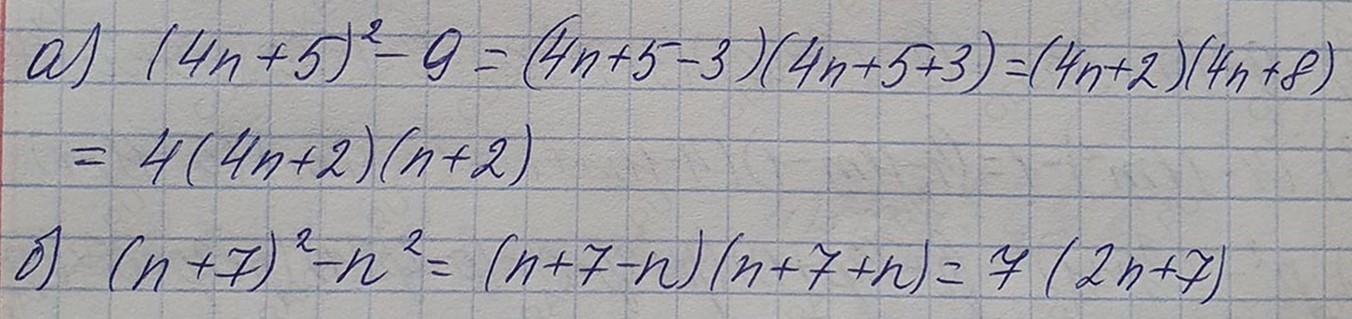 а) (4n+5)² - 9 = (4n+5-3)(4n+5+3) = (4n+2)(4n+8)
= 4(4n+2)(n+2)
б) (n+7)² - n² = (n+7-n)(n+7+n) = 7(2n+7)